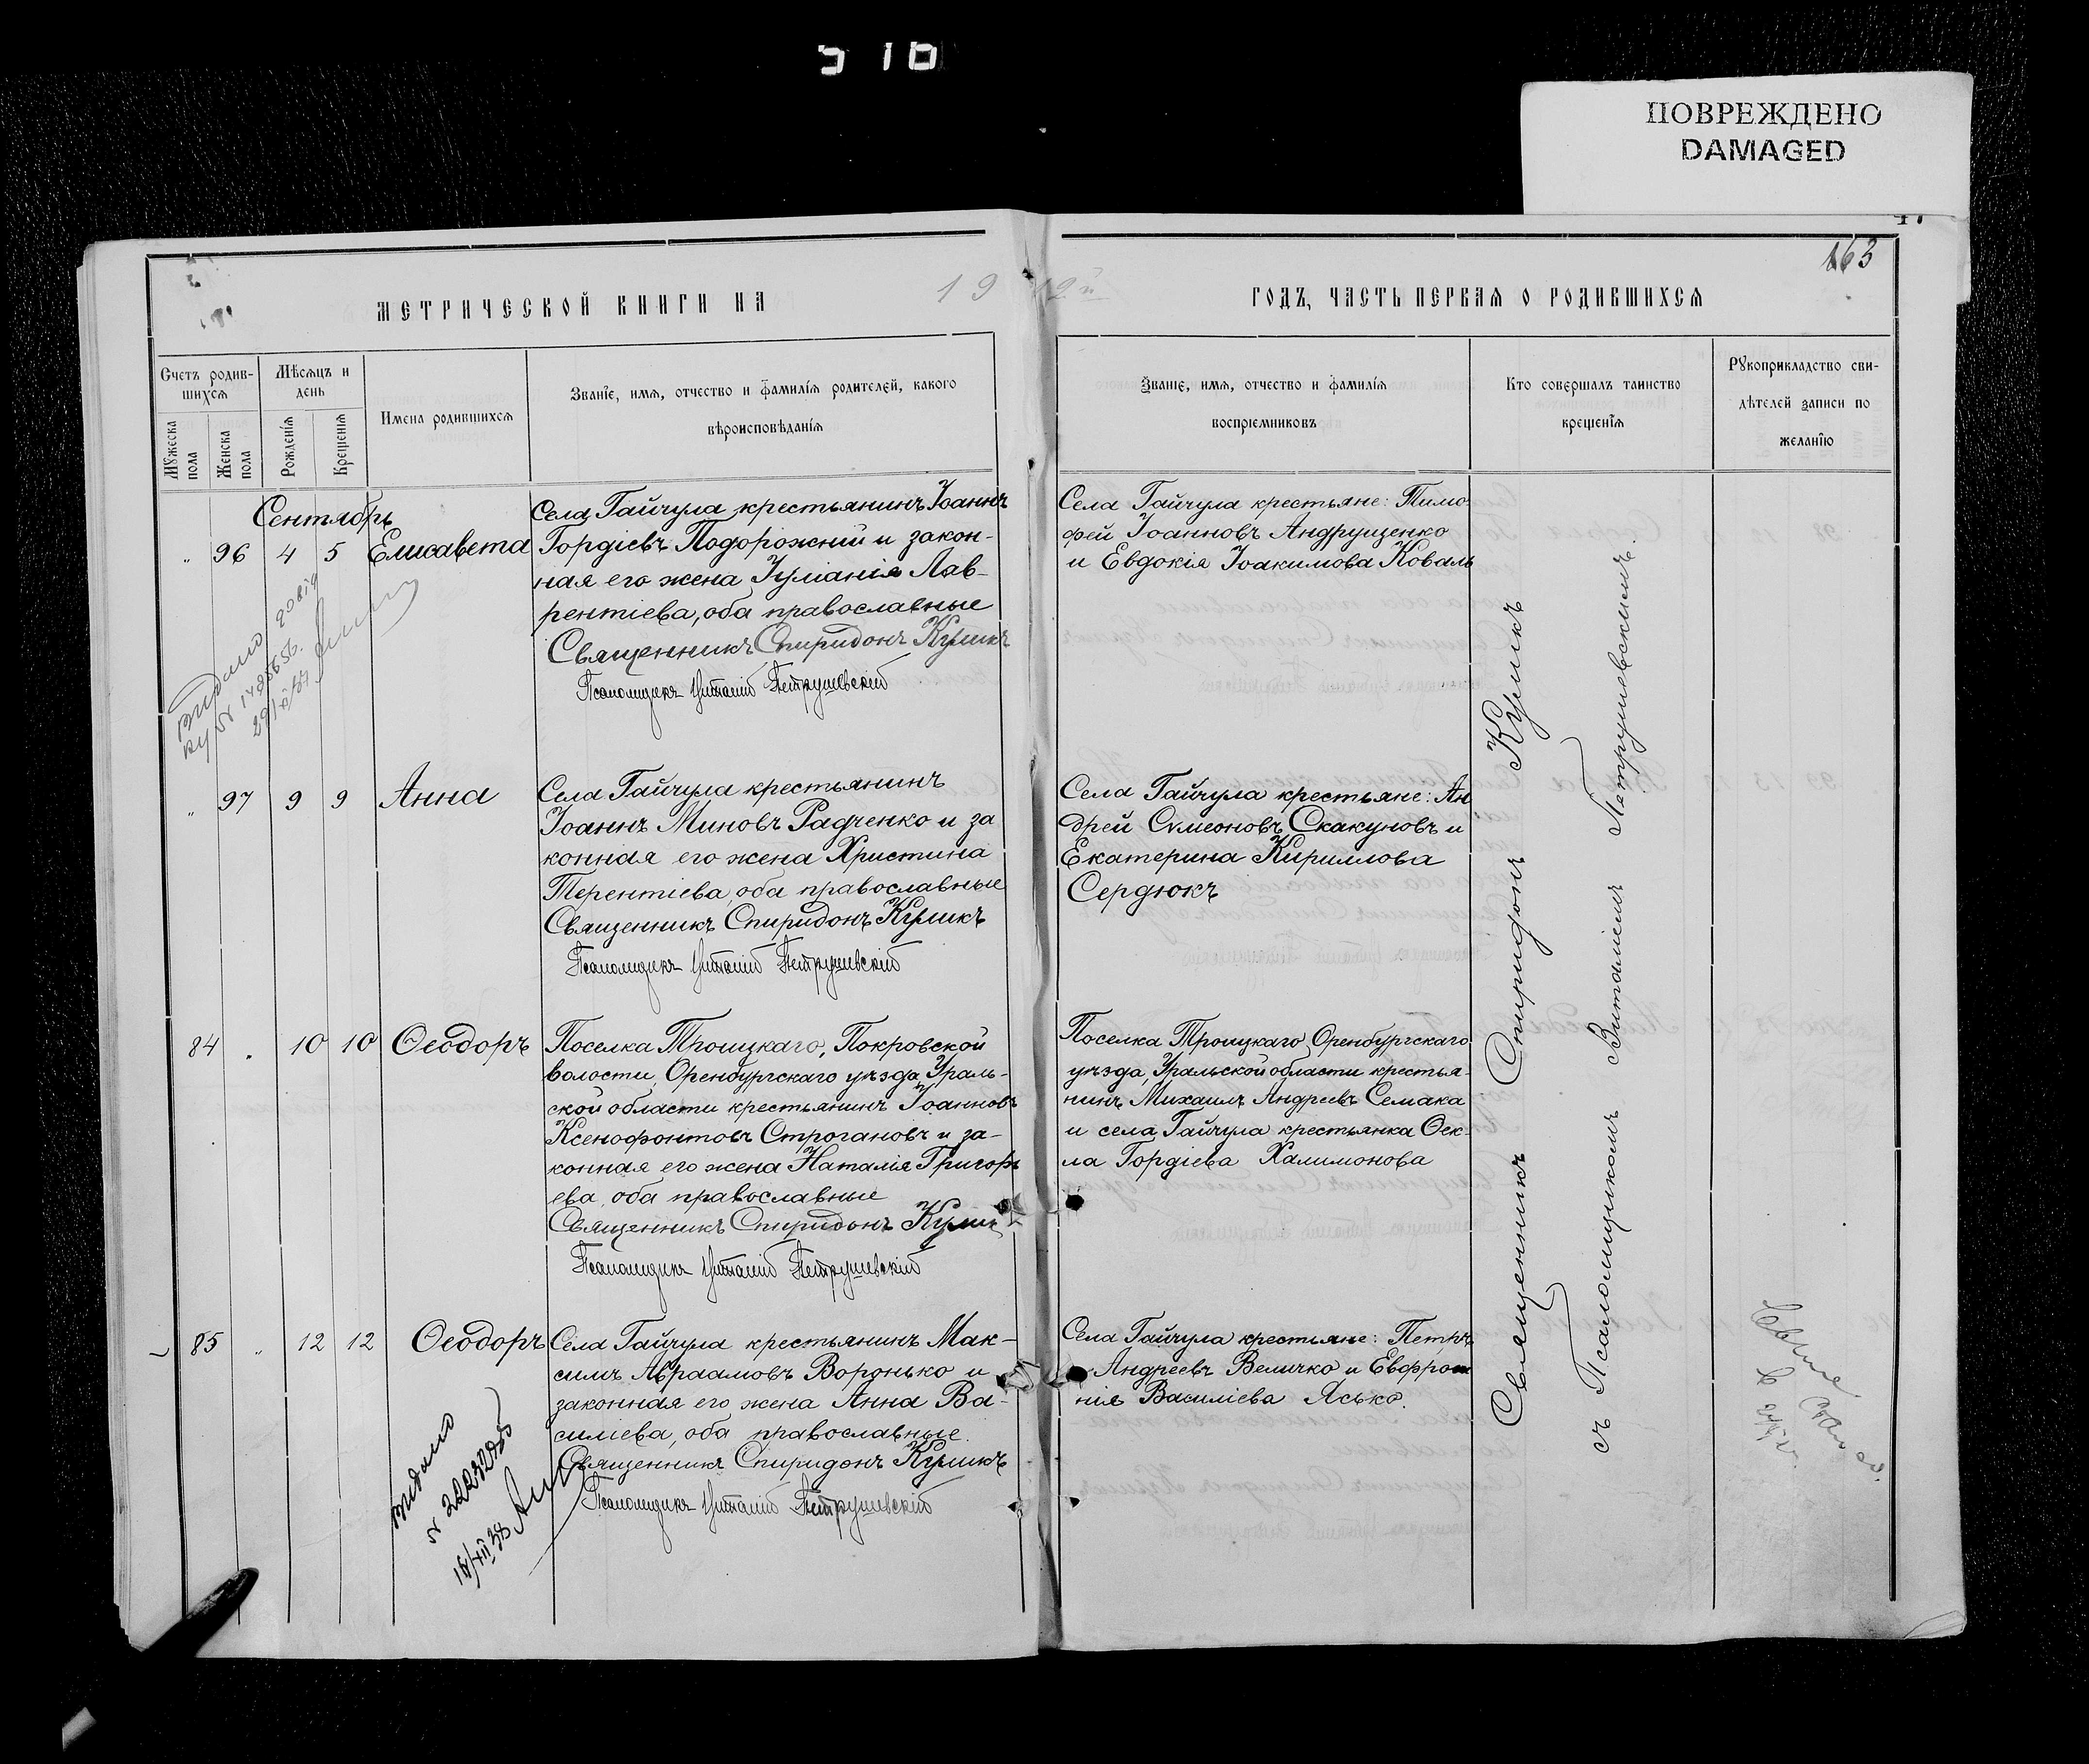 ПОВРЕЖДЕНО
DAMAGED
163
МЕТРИЧЕСКОЙ КНИГИ НА 1912й ГОДЪ, ЧАСТЬ ПЕРВАЯ О РОДИВШИХСЯ
Счетъ родив-
шихся
Мужеска пола
Женска пола
Мѣсяцъ и
день
Рожденія
Крещенія
Имена родившихся
Званіе, имя, отчество и фамилія родителей, какого
вѣроисповѣданія
Званіе, имя, отчество и фамилія
воспріемниковъ
Кто совершалъ таинство
крещенія
Рукоприкладство сви-
дѣтелей записи по
желанію
Сентябрь
" 96 4 5 Елисавета
Села Гайчула крестьянинъ Іоаннъ
Гордіевъ Подорожній и закон-
ная его жена Іуліанія Лав-
рентіева, оба православные
Священникъ Спиридонъ Куликъ
Псаломщикъ Виталій Петрушевскій
Села Гайчула крестьяне: Тимо-
фей Іоанновъ Андрущенко
и Евдокія Іоакимова Коваль
видано
" 97 9 9 Анна
Села Гайчула крестьянинъ
Іоаннъ Миновъ Радченко и за
конная его жена Христина
Терентіева, оба православные
Священникъ Спиридонъ Куликъ
Псаломщикъ Виталій Петрушевскій
Села Гайчула крестьяне: Ан
дрей Сѵмеоновъ Скакуновъ и
Екатерина Кириллова
Сердюкъ
84 " 10 10 Ѳеодоръ
Поселка Троицкаго, Покровской
волости, Оренбургскаго уѣзда, Ураль-
ской области крестьянинъ Іоанновъ
Ксенофонтовъ Строгановъ и за-
конная его жена Наталія Григорь
ева, оба православные
Священникъ Спиридонъ Кулик
Псаломщикъ Виталій Петрушевскій
Поселка Троицкаго, Оренбургскаго
уѣзда, Уральской области крестья-
нинъ Михаилъ Андреевъ Семака
и села Гайчула крестьянка Ѳек-
ла Гордіева Халимонова
85 " 12 12 Ѳеодоръ
Села Гайчула крестьянинъ Мак-
симъ Авраамовъ Воронько и
законная его жена Анна Ва-
силіева, оба православные.
Священникъ Спиридонъ Куликъ
Псаломщикъ Виталій Петрушевскій
Села Гайчула крестьяне: Петръ
Андреевъ Величко и Евфроси
нія Василіева Ясько.
видано
Священникъ Спиридонъ Куликъ
съ Псаломщикомъ Виталіемъ Петрушевскимъ.